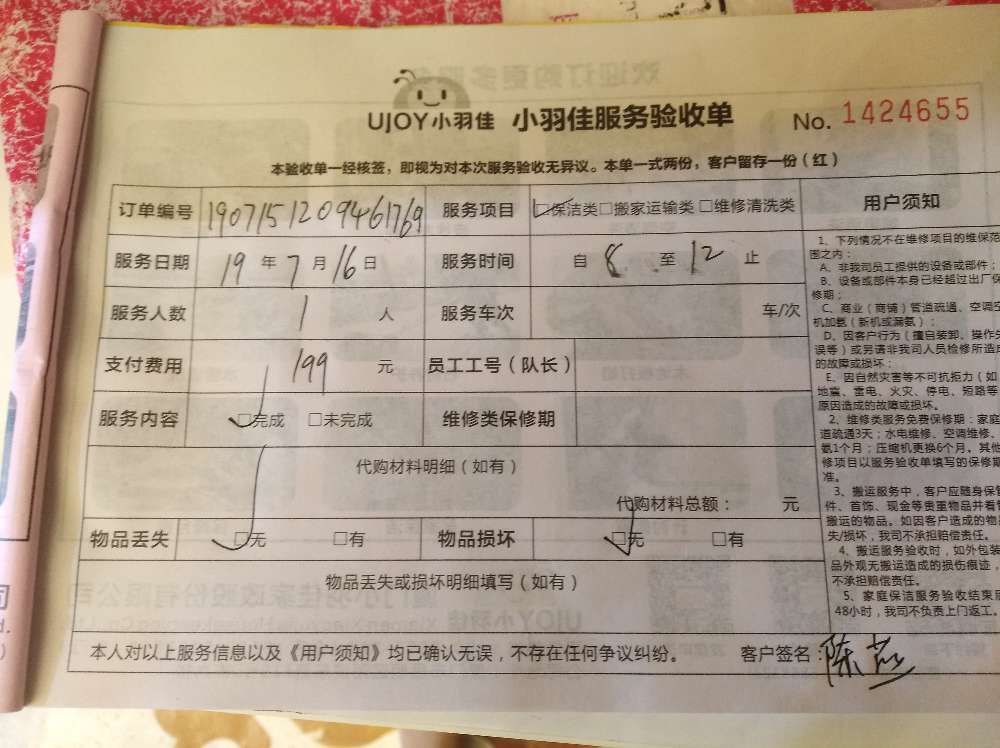 UJOY小羽佳 小羽佳服务验收单 No. 1424655
本验收单一经核签，即视为对本次服务验收无异议。本单一式两份，客户留存一份（红）
订单编号 1907151209461769 服务项目 □保洁类□搬家运输类□维修清洗类
服务日期 19 年 7 月 16 日 服务时间 自 8 至 12 止
服务人数 1 人 服务车次 车/次
支付费用 199 元 员工工号（队长）
服务内容 □完成 □未完成 维修类保修期
代购材料明细（如有）
代购材料总额： 元
物品丢失 □无 □有 物品损坏 □无 □有
物品丢失或损坏明细填写（如有）
本人对以上服务信息以及《用户须知》均已确认无误，不存在任何争议纠纷。 客户签名：陈
用户须知
1、下列情况不在维修项目的维保范
围之内：
A、非我司员工提供的设备或部件；
B、设备或部件本身已经超过出厂保
修期；
C、商业（商铺）管道疏通、空调空
机加氨（新机或漏氨）；
D、因客户行为（擅自装卸、操作失
误等）或另请非我司人员检修所造成
的故障或损坏；
E、因自然灾害等不可抗拒力（如
地震、雷电、火灾、停电、短路等
原因造成的故障或损坏。
2、维修类服务免费保修期：家庭
道疏通3天；水电维修、空调维修、
氨1个月；压缩机更换6个月。其他
修项目以服务验收单填写的保修期
准。
3、搬运服务中，客户应随身保管
件、首饰、现金等贵重物品并看管
搬运的物品。如因客户造成的物
失/损坏，我司不承担赔偿责任。
4、搬运服务验收时，如外包装
品外观无搬运造成的损伤痕迹，
不承担赔偿责任。
5、家庭保洁服务验收结束后
48小时，我司不负责上门返工。